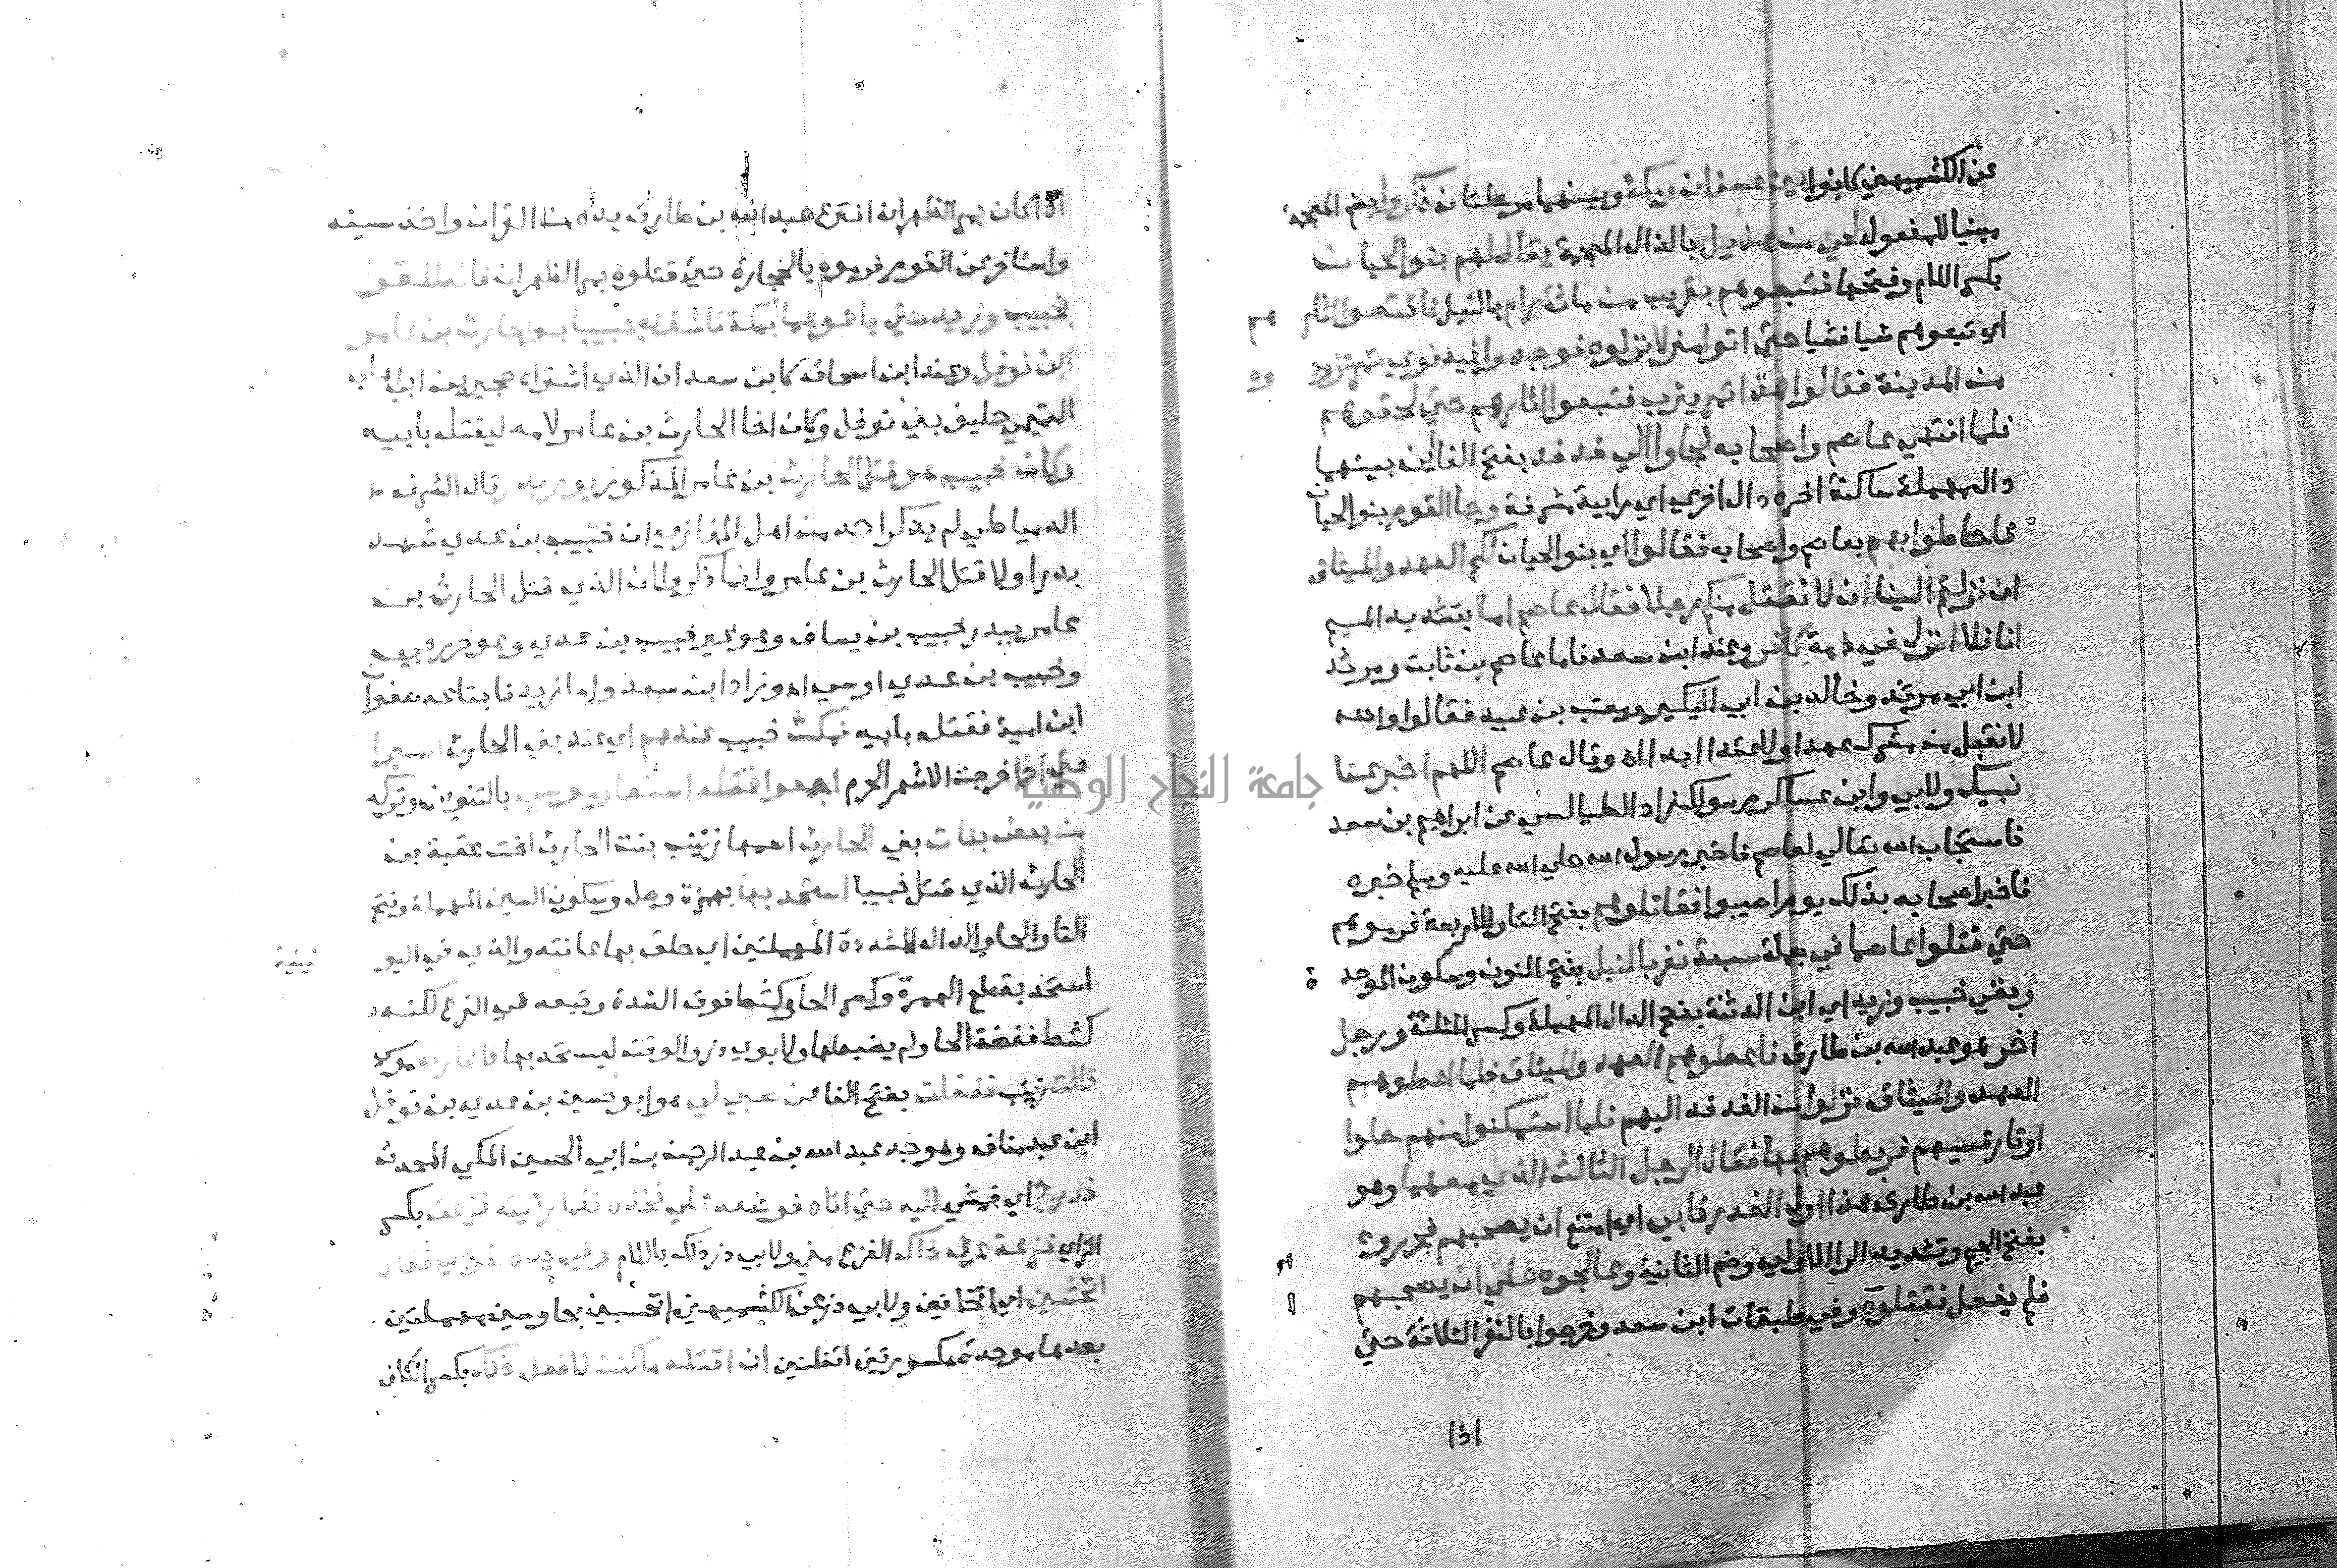 عن الكشميهني كانوا بين عسفان ومكة وبينهما مرحلتان ذكروا بضم المعجمة
مبنيا للمفعول لحي من هذيل بالذال المعجمة يقال لهم بنو الحيان
بكسر اللام وفتحها فتبعوهم بقريب من مائة رام بالنبل فاقتصوا اثار هم
اي تبعوهم شيا فشيا حتي اتوا منزلا نزلوه فوجدوا فيه نوي تمر تزود وه
من المدينة فقالوا هذا تمر يثرب فتبعوا اثارهم حتي لحقوهم
فلما انتهي عاصم واصحابه لجاوا الي فدفد بفتح الفائين بينهما
دال مهملة ساكنة اخره دال اخري اي رابية مشرفة وجا القوم بنو الحيان
فاحاطوا بهم بعاصم واصحابه فقالوا اي بنو الحيان لكم العهد والميثاق
ان نزلتم الينا ان لا نقتل منكم رجلا فقال عاصم اما بتشديد الميم
انا فلا انزل في ذمة كافر وعند ابن سعد فاما عاصم بن ثابت ومرثد
ابن ابي مرثد وخالد بن ابي البكير ومعتب بن عبيد فقالوا والله
لا نقبل من مشرك عهدا ولا عقدا ابدا اه وقال عاصم اللهم اخبر عنا
نبيك ولابي وابن عساكر رسولك زاد الطيالسي عن ابراهيم بن سعد
فاستجاب الله تعالي لعاصم فاخبر رسول الله صلي الله عليه وسلم خبره
فاخبر اصحابه بذلك يوم اصيبوا فقاتلوهم بفتح التا والاربعة فرموهم
حتي قتلوا عاصما في جملة سبعة نفر بالنبل بفتح النون وسكون الموحد ة
وبقي خبيب وزيد اي ابن الدثنة بفتح الدال المهملة وكسر المثلثة ورجل
اخر هو عبد الله بن طارق فاعطوهم العهد والميثاق فلما اعطوهم
العهد والميثاق نزلوا من الفدفد اليهم فلما استمكنوا منهم حلوا
اوتار قسيهم فربطوهم بها فقال الرجل الثالث الذي معهما وهو
عبد الله بن طارق هذا اول الغدر فابي اي امتنع ان يصحبهم فجرروه
بفتح الجيم وتشديد الرا الاولي وضم الثانية وعالجوه علي ان يصحبهم
فلم يفعل فقتلوه وفي طبقات ابن سعد وخرجوا بالنفر الثلاثة حتي
اذا
اذا كان بمر الظهران انتزع عبد الله بن طارق يده من القران واخذ سيفه
واستاخر عن القوم فرموه بالحجارة حتي قتلوه بمر الظهران فانطلقوا
بخبيب وزيد حتي باعوهما بمكة فاشتري خبيبا بنو حارث بن عامر
ابن نوفل وعند ابن اسحاق كابن سعد ان الذي اشتراه حجير بن ابي اهاب
التميمي حليف بني نوفل وكان اخا الحارث بن عامر لامه ليقتله بابيه
وكان خبيب هو قتل الحارث بن عامر المذكور يوم بدر قال الشرف
الدمياطي لم يذكر احد من اهل المغازي ان خبيب بن عدي شهد
بدرا ولا قتل الحارث بن عامر وانما ذكروا ان الذي قتل الحارث بن
عامر ببدر خبيب بن يساف وهو غير خبيب بن عدي وهو خزرجي
وخبيب بن عدي اوسي اه وزاد ابن سعد واما زيد فابتاعه صفوان
ابن امية فقتله بابيه فمكث خبيب عندهم اي عند بني الحارث اسيرا
حتي اذا خرجت الاشهر الحرم اجمعوا قتله استعار موسي بالتنوين وتركه
من بعض بنات بني الحارث اسمها زينب بنت الحارث اخت عقبة بن
الحارث الذي قتل خبيبا استحد بها بهمزة وصل وسكون السين المهملة وفتح
التا والحا والدال المشددة المهملتين اي حلق بها عانته والذي في اليو نينية
استحد بقطع الهمزة وكسر الحا وكشط فوق الشدة وتبعه في الفرع لكنه
كشط خفضة الحا ولم يضبطها ولابوي ذر والوقت ليستحد بها فاعارته
قالت زينب فغفلت بفتح الفا عن صبي لي هو ابو حسين بن عدي بن نوفل
ابن عبد مناف وهو جد عبد الله بن عبد الرحمن بن ابي الحسين المكي المحدث
فدرج اي فمشي اليه حتي اتاه فوضعه علي فخذه فلما رايته فزعت بكسر
الزاي فزعة عرف ذاك الفزع مني ولابي ذر ذلك باللام وفي يده الموسي فقال
اتخشين اي اتخافين ولابي ذر عن الكشميهني اتحسبين بحا وسين مهملتين
بعدهما موحدة مكسورتين اتظنين ان اقتله ما كنت لافعل ذلك بكسر الكاف
جامعة النجاح الوطنية